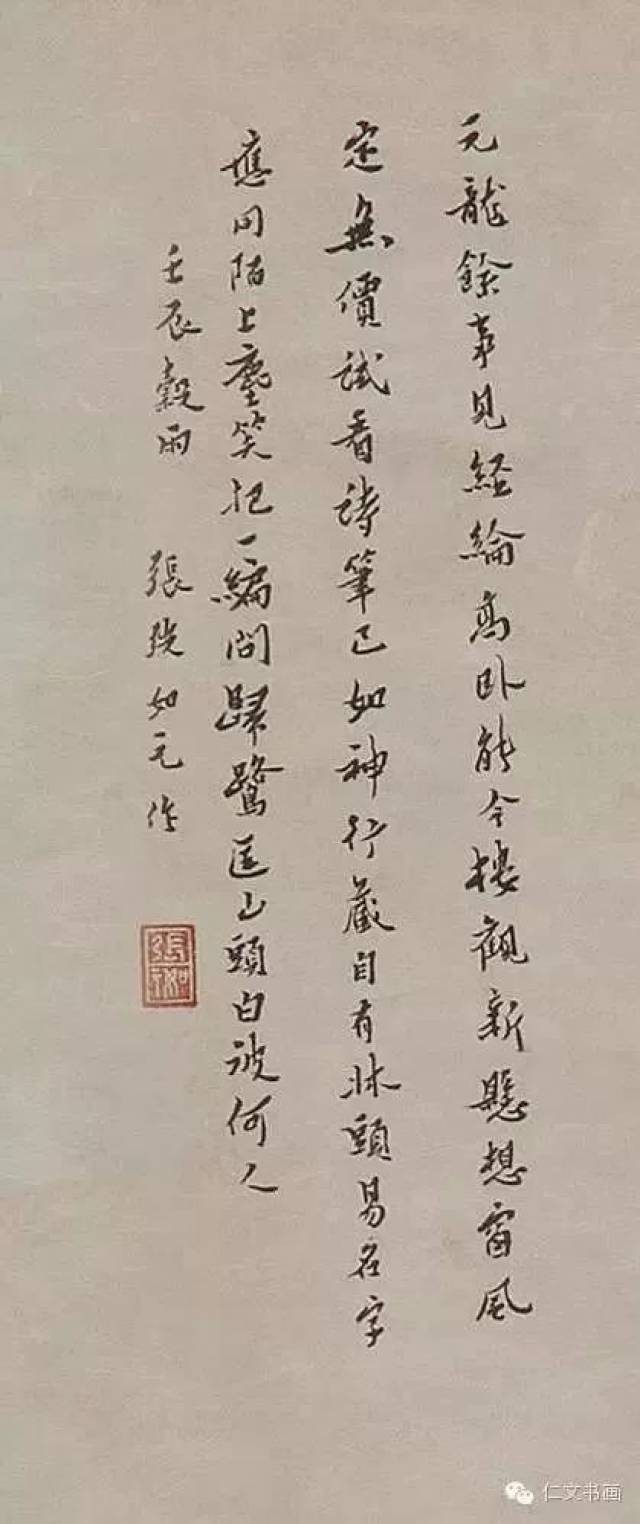 元龍餘事見經綸高卧能令樓觀新懸想窗風
定無價試看詩筆已如神行藏自有牀頭易名字
應同陌上塵笑把一編問歸鷺匡山頭白彼何人
壬辰穀雨 張如元作
仁文书画